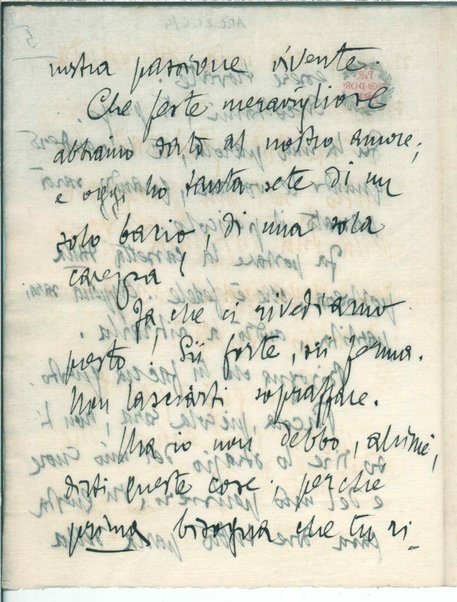 nostra passione vivente.
Che feste meravigliose
abbiamo dato al nostro amore;
e oggi ho tanta sete di un
solo bacio, di una sola
carezza!
Fa che ci rivediamo
presto! Sii forte, sii ferma.
Non lasciarti sopraffare.
Ma io non debbo, ahimè,
darti queste cose perchè
prima bisogna che tu ri-